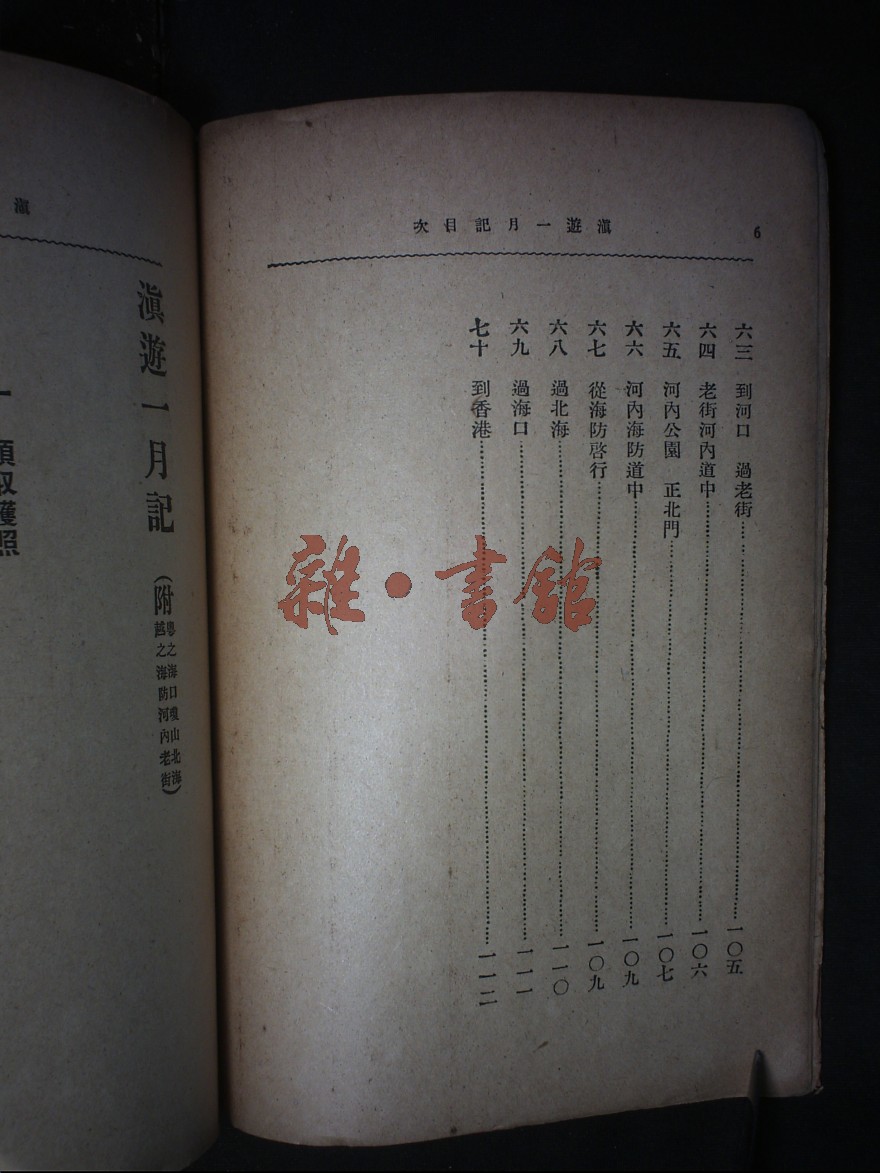 滇遊一月記目次
6
六三 到河口 過老街 一〇五
六四 老街河內道中 一〇六
六五 河內公園 正北門 一〇七
六六 河內海防道中 一〇九
六七 從海防啓行 一〇九
六八 過北海 一一〇
六九 過海口 一一一
七十 到香港 一一二
雜·書館
滇
滇遊一月記
(附粵之海口瓊山北海
越之海防河內老街)
一 領取護照